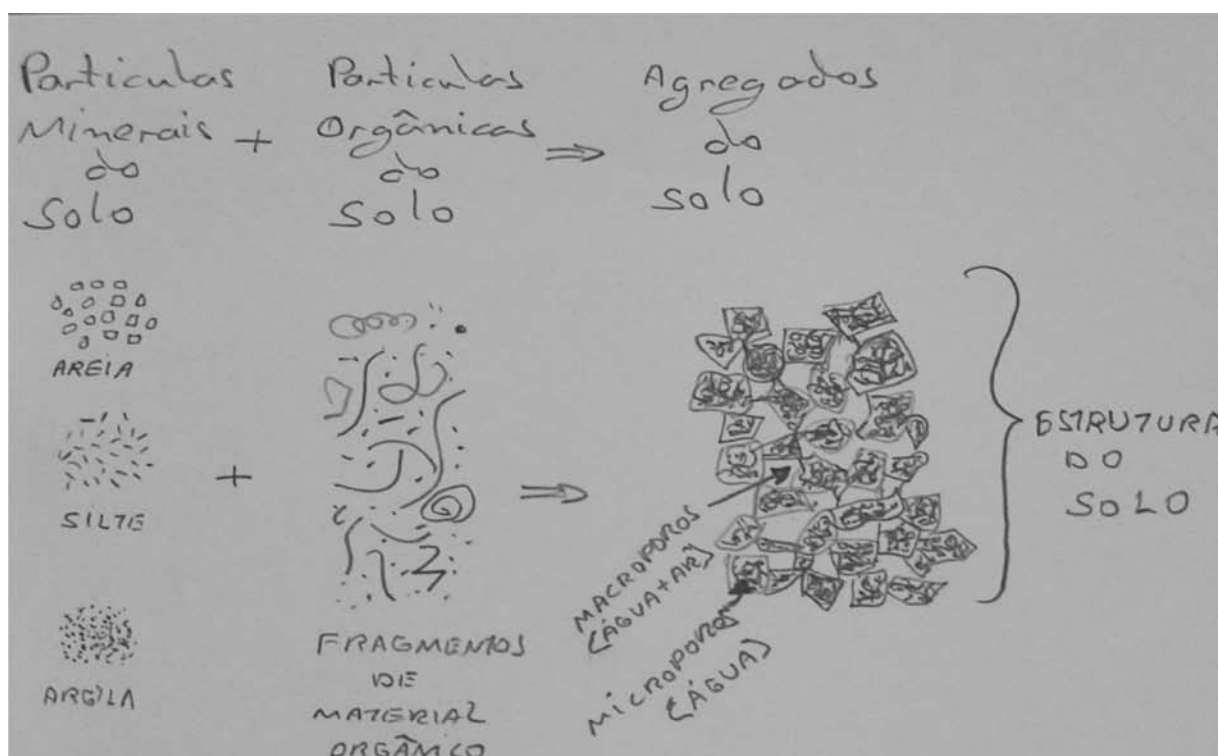 Particulas
Minerais
do
Solo
+
Particulas
Orgânicas
do
Solo
⇒
Agregados
do
solo
AREIA
SILTE
ARGILA
+
FRAGMENTOS
DE
MATERIAL
ORGÂNICO
⇒
MACROPOROS
(ÁGUA+AR)
MICROPOROS
(ÁGUA)
ESTRUTURA
DO
SOLO